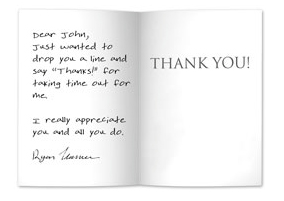 Dear John,
Just wanted to
drop you a line and
say "Thanks!" for
taking time out for
me.
I really appreciate
you and all you do.
Ryan
THANK YOU!